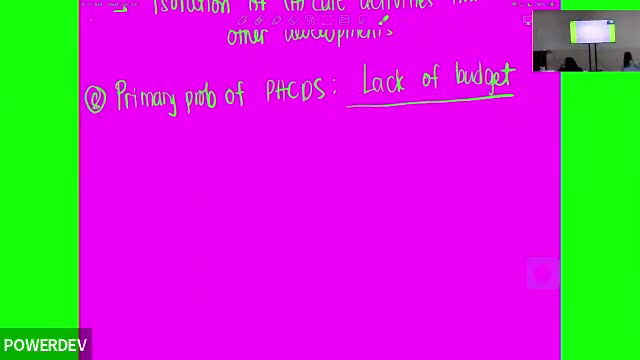 Isolation of H care activities from
other developments
② Primary prob of PHCDS: Lack of budget
POWERDEV